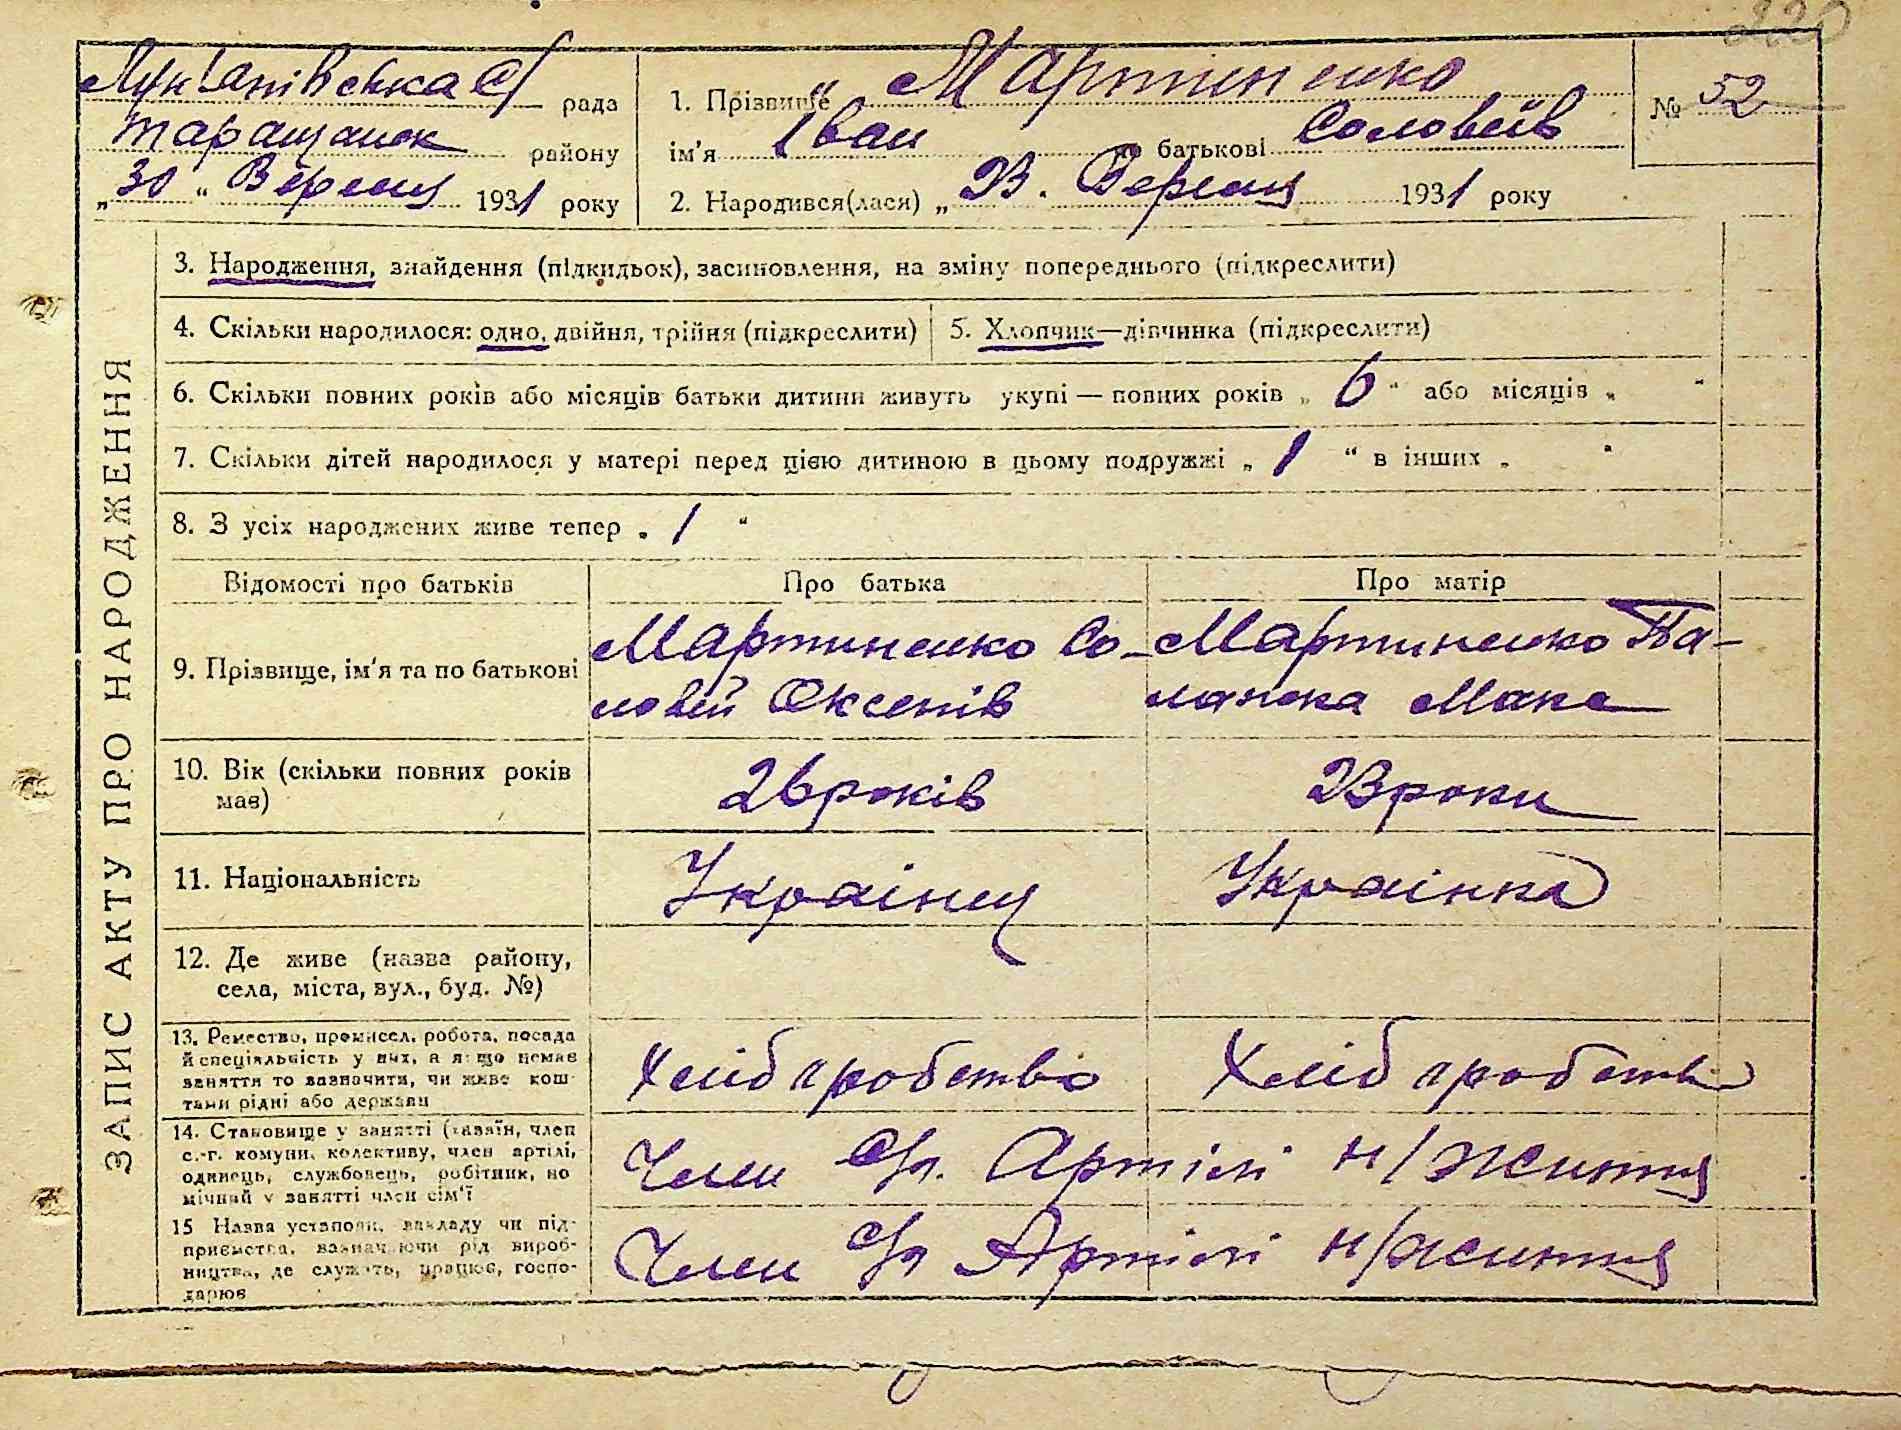 220
Лук'янівська с/ рада
Таращанськ району
„30“ Вересня 1931 року
1. Прізвище Мартиненко
ім'я Іван по батькові Соловейів
2. Народився(лася) „23. Вересня 1931 року
№ 52
ЗАПИС АКТУ ПРО НАРОДЖЕННЯ
3. Народження, знайдення (підкидьок), засиновлення, на зміну попереднього (підкреслити)
4. Скільки народилося: одно, двійня, трійня (підкреслити)
5. Хлопчик—дівчинка (підкреслити)
6. Скільки повних років або місяців батьки дитини живуть укупі — повних років „ 6 “ або місяців „ “
7. Скільки дітей народилося у матері перед цією дитиною в цьому подружжі „ 1 “ в інших „ “
8. З усіх народжених живе тепер „ 1 “
Відомості про батьків Про батька Про матір
9. Прізвище, ім'я та по батькові
Мартиненко Со-
ловей Оксентів
Мартиненко Па-
ланжка Мака
10. Вік (скільки повних років
має)
26 років
23 роки
11. Національність Украінец Украінка
12. Де живе (назва району,
села, міста, вул., буд. №)
13. Ремество, промисел, робота, посада
й спеціяльність у них, а якщо немає
заняття то зазначити, чи живе кош-
тами рідні або держави
Хліборобство
Хліборобств
14. Становище у занятті (хазяїн, член
с.-г. комуни, колективу, член артілі,
одинець, службовець, робітник, по
мічний у занятті член сім'ї
Член с/г. Артілі н/життя
15 Назва установи, закладу чи під-
приємства, вазначаючи рід вироб-
ництва, де служить, працює, госпо-
дарює
Член с/г Артілі н/життя